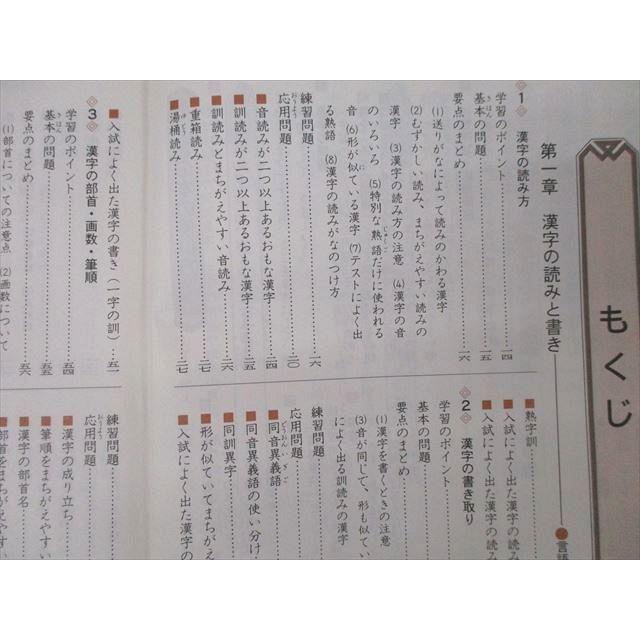 もくじ
第一章 漢字の読みと書き
言語
1 漢字の読み方
学習のポイント……一四
基本の問題……一五
要点のまとめ……一六
(1)送りがなによって読みのかわる漢字
(2)むずかしい読み、まちがえやすい読みの
漢字 (3)漢字の読み方の注意 (4)漢字の音
のいろいろ (5)特別な熟語だけに使われる
音 (6)形が似ている漢字 (7)テストによく出
る熟語 (8)漢字の読みがなのつけ方
練習問題……一六
応用問題……二〇
■音読みが二つ以上あるおもな漢字……二四
■訓読みが二つ以上あるおもな漢字……二五
■訓読みとまちがえやすい音読み……二六
■重箱読み……二七
■湯桶読み……二七
■熟字訓
■入試によく出た漢字の読み
■入試によく出た漢字の読み
2 漢字の書き取り
学習のポイント
基本の問題
要点のまとめ
(1)漢字を書くときの注意
(3)音が同じで、形も似てい
によく出る訓読みの漢字
練習問題
応用問題
■同音異義語
■同音異義語の使い分け
■同訓異字
■形が似ていてまちがえ
■入試によく出た漢字の
■入試によく出た漢字の書き(一字の訓)……五一
3 漢字の部首・画数・筆順
学習のポイント……五四
基本の問題……五五
要点のまとめ……五六
(1)部首についての注意点 (2)画数について
練習問題
応用問題
■漢字の成り立ち
■筆順をまちがえやす
■漢字の部首名
■部首をまちがえやす